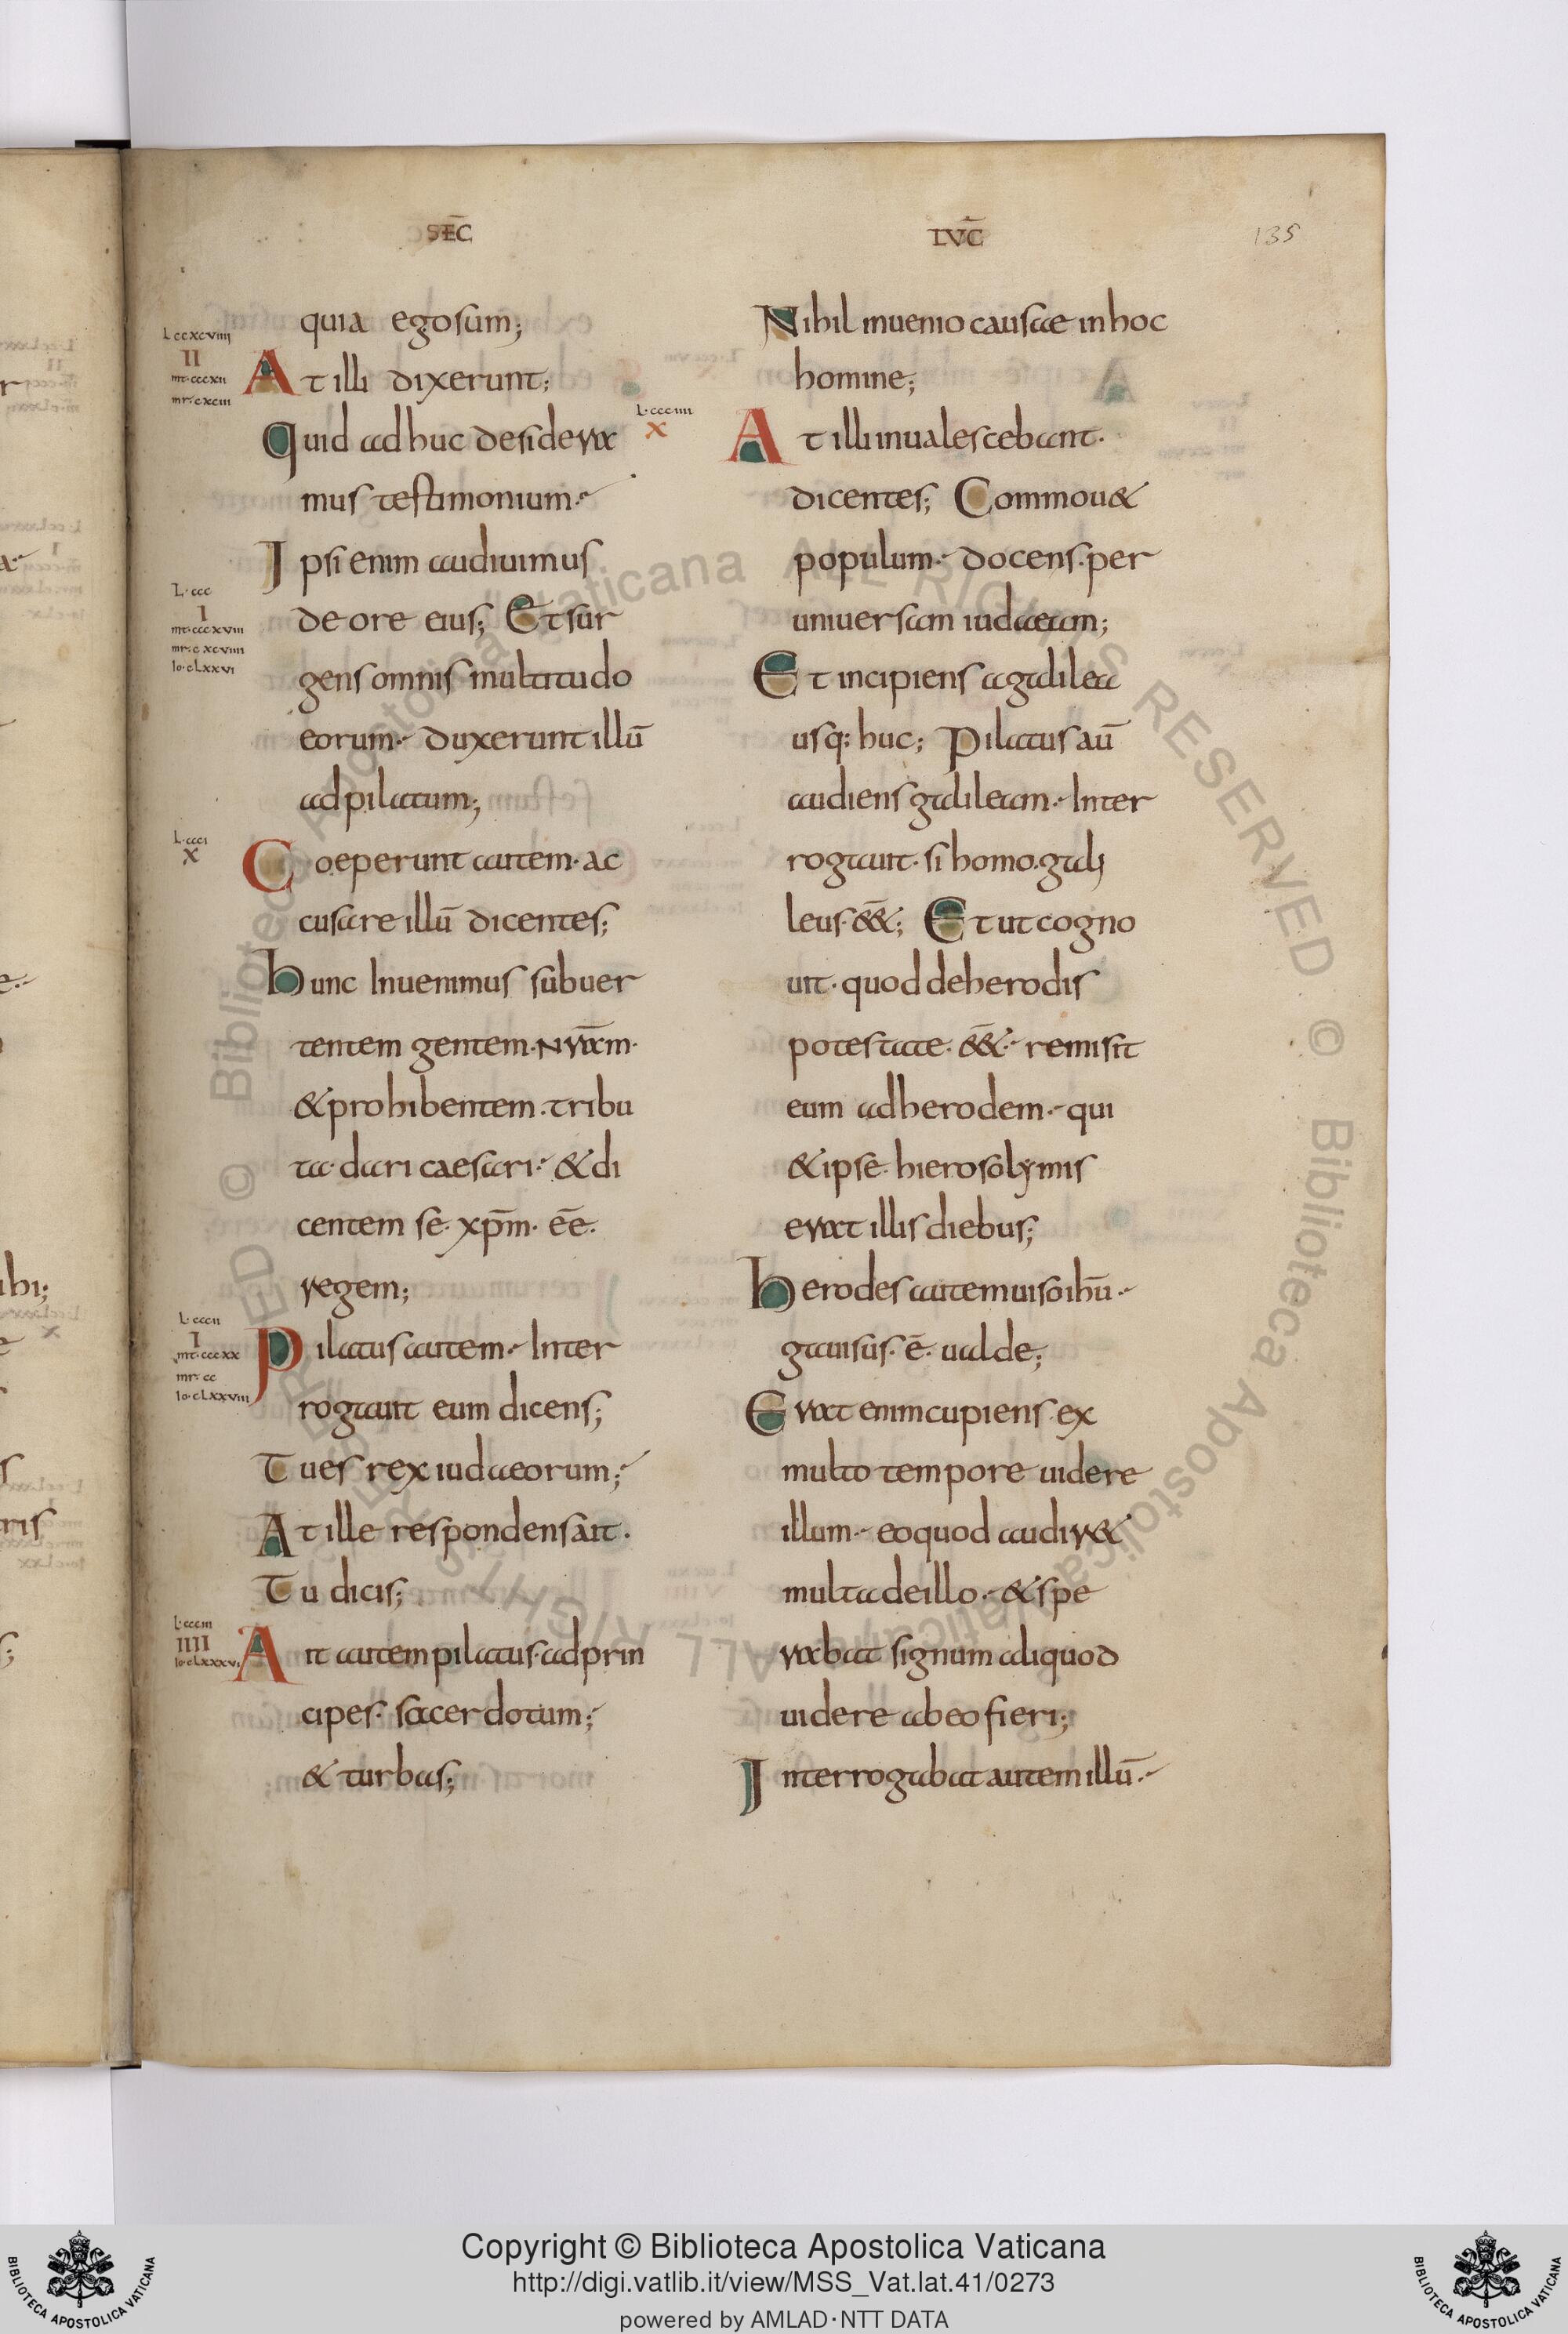 SEC̄
LVC̄
135
L ccxcviiii
II
mt·cccxii
mr·cxciii
quia ego sum;
At illi dixerunt;
Quid adhuc desidera
mus testimonium·
Ipsi enim audiuimus
L·ccc
I
mt·cccxviii
mr·cxcviiii
Io·cLxxvi
de ore eius; Et sur
gens omnis multitudo
eorum· duxerunt illū
ad pilatum;
L·ccci
X
Coeperunt autem· ac
cusare illū dicentes;
hunc Inuenimus subuer
tentem gentem· nr̄am·
& prohibentem· tribu
ta· dari caesari· & di
centem se· xp̄m· ēe·
regem;
L·cccii
I
mt·cccxx
mr·cc
Io·cLxxviii
Pilatus autem· Inter
rogauit eum dicens;
Tu es rex iudaeorum;
At ille respondens ait·
Tu dicis;
L·ccciii
IIII
Io·cLxxxvi
Ait autem pilatus· ad prin
cipes· sacerdotum;
& turbas;
Nihil inuenio causae in hoc
homine;
L·ccciiii
X
At illi inualescebant·
dicentes; Commou&
populum· docens· per
uniuersam iudaeam;
Et incipiens a galilea
usq: huc; Pilatus aū
audiens galileam· Inter
rogauit· si homo· gali
leus· ēss&; Et ut cogno
uit· quod de herodis
potestate· ēss&· remisit
eum ad herodem· qui
& ipse· hierosolymis
erat illis diebus;
herodes autem uiso ihū·
gauisus· ē· ualde;
Erat enim cupiens· ex
multo tempore uidere
illum· eo quod audir&
multa de illo· & spe
rabat signum aliquod
uidere ab eo fieri;
Interrogabat autem illū·
Copyright © Biblioteca Apostolica Vaticana
http://digi.vatlib.it/view/MSS_Vat.lat.41/0273
powered by AMLAD·NTT DATA